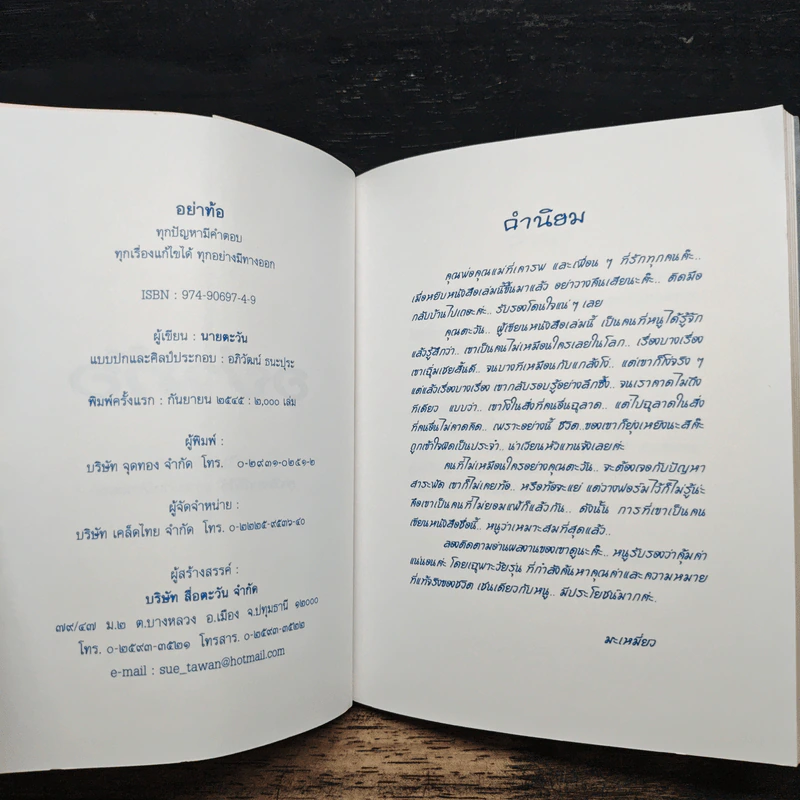 อย่าท้อ
ทุกปัญหามีคำตอบ
ทุกเรื่องแก้ไขได้ ทุกอย่างมีทางออก
ISBN : 974-90697-4-9
ผู้เขียน : นายตะวัน
แบบปกและศิลป์ประกอบ : อภิวัฒน์ ธนะปุระ
พิมพ์ครั้งแรก : กันยายน ๒๕๔๕ : ๒,๐๐๐ เล่ม
ผู้พิมพ์ :
บริษัท จุดทอง จำกัด โทร. ๐-๒๙๓๑-๐๒๕๑-๒
ผู้จัดจำหน่าย :
บริษัท เคล็ดไทย จำกัด โทร. ๐-๒๒๒๕-๙๕๓๖-๔๐
ผู้สร้างสรรค์ :
บริษัท สื่อตะวัน จำกัด
๗๙/๔๗ ม.๒ ต.บางหลวง อ.เมือง จ.ปทุมธานี ๑๒๐๐๐
โทร. ๐-๒๕๙๓-๓๕๒๑ โทรสาร. ๐-๒๕๙๓-๓๕๒๒
e-mail : sue_tawan@hotmail.com
คำนิยม
คุณพ่อคุณแม่ที่เคารพ และเพื่อน ๆ ที่รักทุกคนค๊ะ..
เมื่อหยิบหนังสือเล่มนี้ขึ้นมาแล้ว อย่าวางคืนเสียนะค๊ะ.. ติดมือ
กลับบ้านไปเถอะค่ะ.. รับรองโดนใจแน่ ๆ เลย
คุณตะวัน.. ผู้เขียนหนังสือเล่มนี้ เป็นคนที่หนูได้รู้จัก
แล้วรู้สึกว่า.. เขาเป็นคนไม่เหมือนใครเลยในโลก.. เรื่องบางเรื่อง
เขาเฉิ่มเชยสิ้นดี.. จนบางทีเหมือนกับแกล้งโง่.. แต่เขาก็โง่จริง ๆ
แต่แล้วเรื่องบางเรื่อง เขากลับรอบรู้อย่างลึกซึ้ง.. จนเราคาดไม่ถึง
ทีเดียว แบบว่า.. เขาโง่ในสิ่งที่คนอื่นฉลาด.. แต่ไปฉลาดในสิ่ง
ที่คนอื่นไม่คาดคิด.. เพราะอย่างนี้ ชีวิต..ของเขาก็ยุ่งเหยิงนะสิค๊ะ
ถูกเข้าใจผิดเป็นประจำ.. น่าเวียนหัวแทนจังเลยค่ะ
คนที่ไม่เหมือนใครอย่างคุณตะวัน.. จะต้องเจอกับปัญหา
สารพัด เขาก็ไม่เคยท้อ.. หรือท้อจะแย่ แต่วางฟอร์มไว้ก็ไม่รู้น่ะ
คือเขาเป็นคนที่ไม่ยอมแพ้ก็แล้วกัน.. ดังนั้น การที่เขาเป็นคน
เขียนหนังสือชื่อนี้.. หนูว่าเหมาะสมที่สุดแล้ว..
ลองติดตามอ่านผลงานของเขาดูนะค๊ะ.. หนูรับรองว่าคุ้มค่า
แน่นอนค่ะ โดยเฉพาะวัยรุ่น ที่กำลังค้นหาคุณค่าและความหมาย
ที่แท้จริงของชีวิต เช่นเดียวกับหนู.. มีประโยชน์มากค่ะ.
มะเหมี่ยว